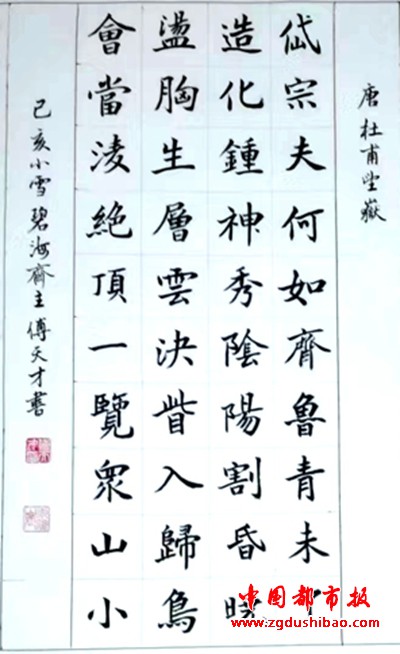 唐杜甫望嶽
岱宗夫何如齊魯青未了
造化鍾神秀陰陽割昏曉
盪胸生層雲決眥入歸鳥
會當淩絶頂一覽眾山小
己亥小雪碧海齋主傅天才書
中国都市报
www.zgdushibao.com